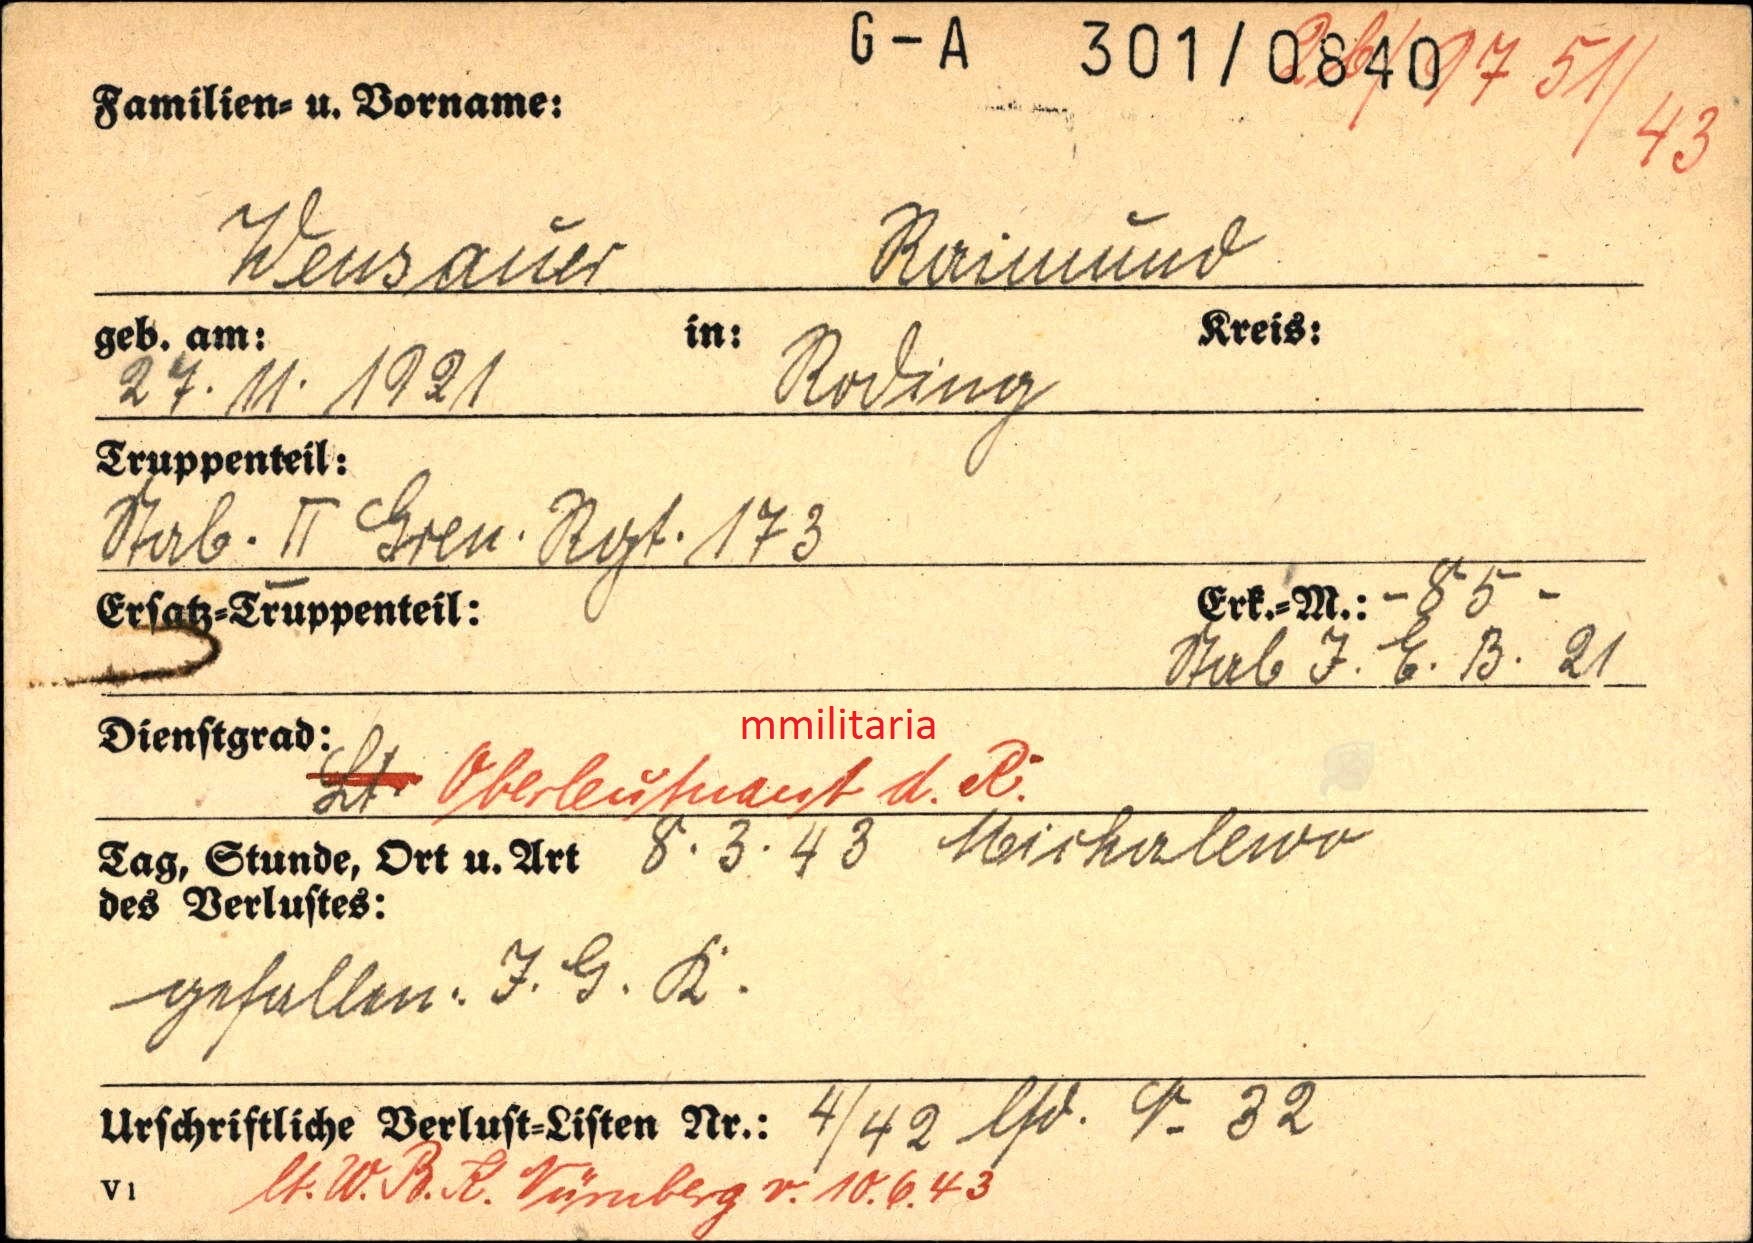 G-A 301/0840 17 51/
43
Familien- u. Vorname:
Wensauer Raimund
geb. am: in: Kreis:
27. 11. 1921 Roding
Truppenteil:
Stab. II Gren. Rgt. 173
Ersatz-Truppenteil: Erk.-M.: - 85 -
Stab J. E. B. 21
Dienstgrad:
mmilitaria
Lt. Oberleutnant d. R.
Tag, Stunde, Ort u. Art 8. 3. 43 Michalewo
des Verlustes:
gefallen. J. G. K.
Urschriftliche Verlust-Listen Nr.: 4/42 lfd. 32
V1 lt. W. B. K. Nürnberg v. 10.6.43